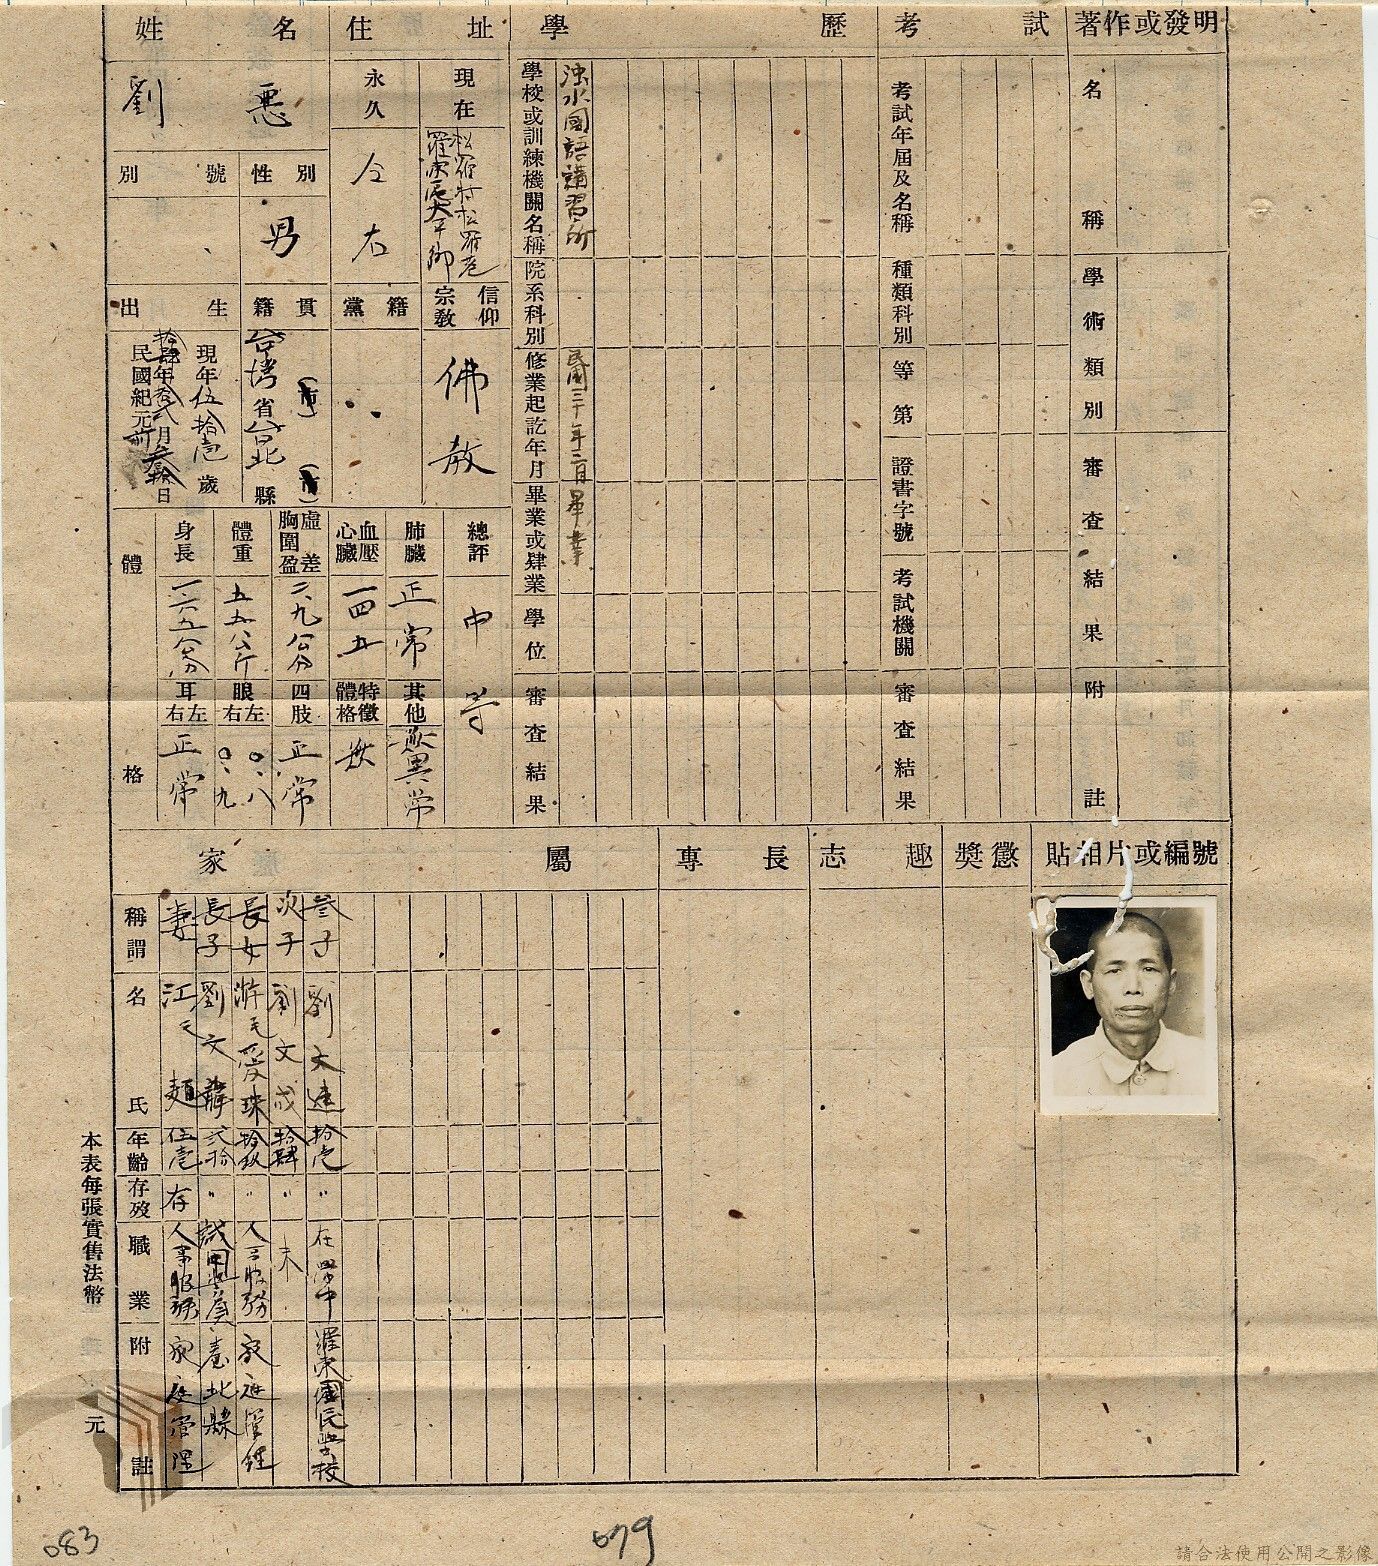 姓名
劉惡
別號
性別
男
出生
現年伍拾壱歲
民國紀元前拾肆年
月
日
籍貫
台湾省台北縣
住址
永久
仝右
現在
羅東區太平鄉
松羅村松羅巷
黨籍
宗教信仰
佛教
體格
身長
一六五公分
體重
五五公斤
胸圍盈虛差
六、九公分
心臟血壓
一四五
肺臟
正常
總評
中等
耳右左
正常
眼右左
〇、八
〇、九
四肢
正常
體格特徵
無
其他
無異常
學歷
學校或訓練機關名稱
浊水國語講習所
院系科別
修業起訖年月
民國三十年三月
畢業或肄業
畢業
學位
審查結果
考試
考試年屆及名稱
種類科別
等第
證書字號
考試機關
審查結果
著作或發明
名稱
學術類別
審查結果
附註
家屬
稱謂
名氏
年齡
存歿
職業
附註
妻
江氏麵
伍壱
存
人事服務
家庭管理
長子
劉文
弍拾
〃
試用警員
臺北縣
長女
游氏愛珠
拾玖
〃
人事服務
家庭管理
次子
劉文成
拾肆
〃
未
叁子
劉文達
拾壱
〃
在學中
羅東國民學校
專長
志趣
獎懲
貼相片或編號
本表每張實售法幣 元
083
079
請合法使用公開之影像